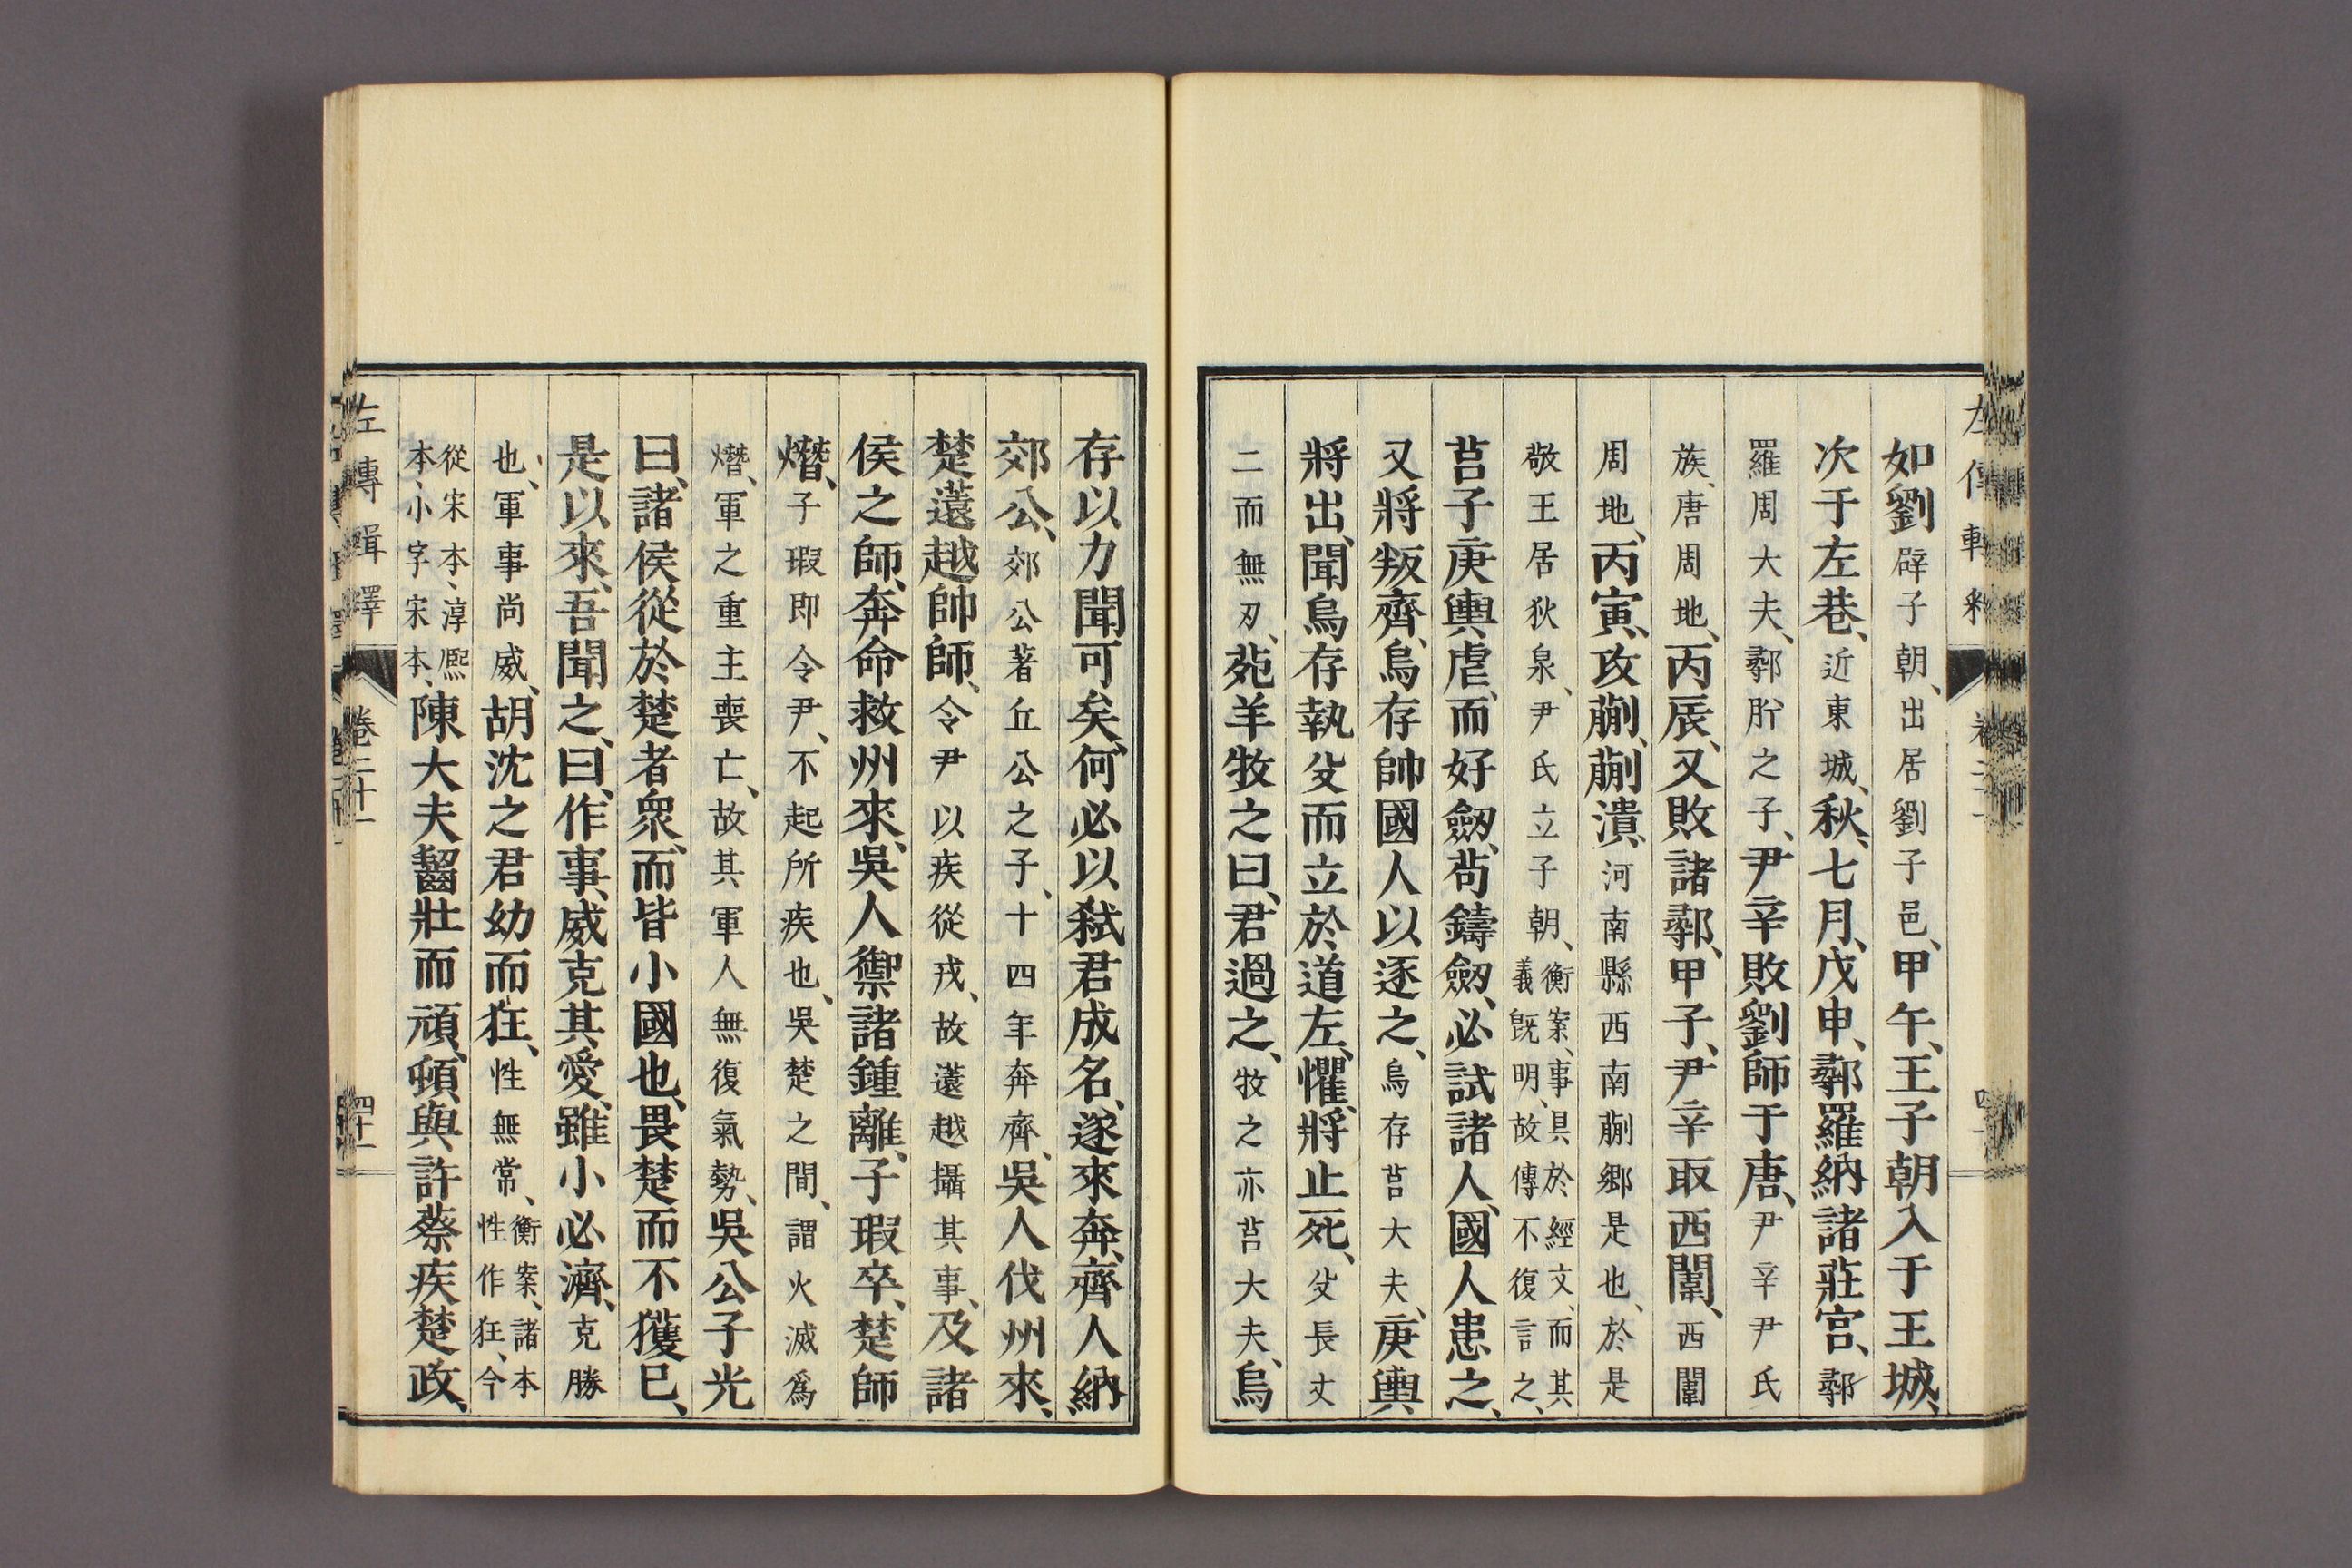 如劉辟子朝、出居劉子邑、甲午、王子朝入于王城、
次于左巷、近東城、秋、七月、戊申、鄩羅納諸莊宮、鄩
羅周大夫、鄩肸之子、尹辛敗劉師于唐、尹辛尹氏
族、唐周地、丙辰、又敗諸鄩、甲子、尹辛取西闈、西闈
周地、丙寅、攻蒯、蒯潰、河南縣西南蒯鄉是也、於是
敬王居狄泉、尹氏立子朝、衡案、事具於經文、而其義既明、故傳不復言之、
莒子庚輿虐、而好劔、茍鑄劔、必試諸人、國人患之、
又將叛齊、烏存帥國人以逐之、烏存莒大夫、庚輿、
將出、聞烏存執殳而立於道左、懼、將止死、殳長丈
二而無刃、苑羊牧之曰、君過之、牧之亦莒大夫、烏
存以力聞可矣、何必以弑君成名、遂來奔、齊人納
郊公、郊公著丘公之子、十四年奔齊、吳人伐州來、
楚薳越帥師、令尹以疾從戎、故薳越攝其事、及諸
侯之師、奔命救州來、吳人禦諸鍾離、子瑕卒、楚師
熸、子瑕即令尹、不起所疾也、吳楚之間、謂火滅爲
熸、軍之重主喪亡、故其軍人無復氣勢、吳公子光
曰、諸侯從於楚者衆、而皆小國也、畏楚而不獲已、
是以來、吾聞之、曰、作事、威克其愛、雖小必濟、克勝
也、軍事尚威、胡沈之君幼而狂、性無常、衡案、諸本性作狂、今
從宋本、淳熙本、小字宋本、陳大夫齧壯而頑、頓與許蔡疾楚政、
左傳輯釋
卷二十一
四十一